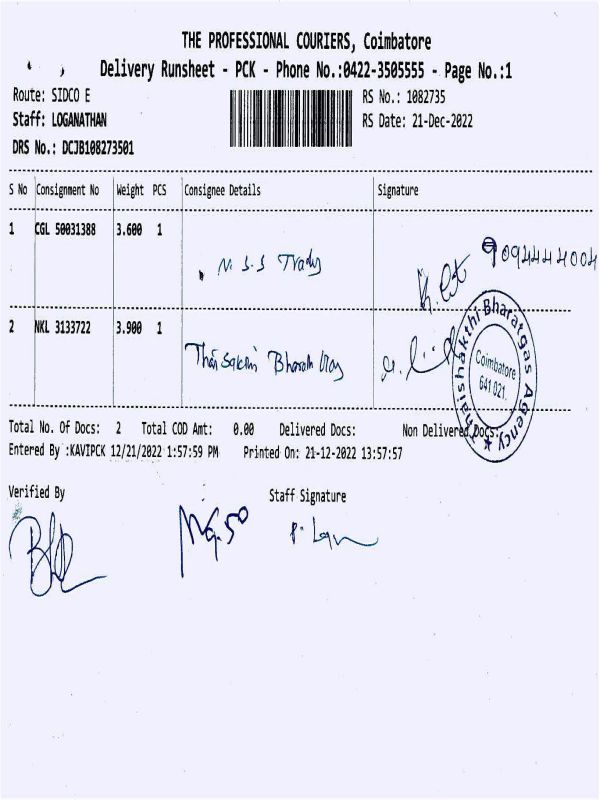 THE PROFESSIONAL COURIERS, Coimbatore
Delivery Runsheet - PCK - Phone No.:0422-3505555 - Page No.:1
Route: SIDCO E
RS No.: 1082735
Staff: LOGANATHAN
RS Date: 21-Dec-2022
DRS No.: DCJB108273501
S No Consignment No Weight PCS Consignee Details Signature
1 CGL 50031388 3.600 1
9094444004
2 NKL 3133722 3.900 1
Thaishakthi Bharatgas Agency
Coimbatore
641 021.
Total No. Of Docs: 2 Total COD Amt: 0.00 Delivered Docs: Non Delivered Docs:
Entered By :KAVIPCK 12/21/2022 1:57:59 PM Printed On: 21-12-2022 13:57:57
Verified By Staff Signature